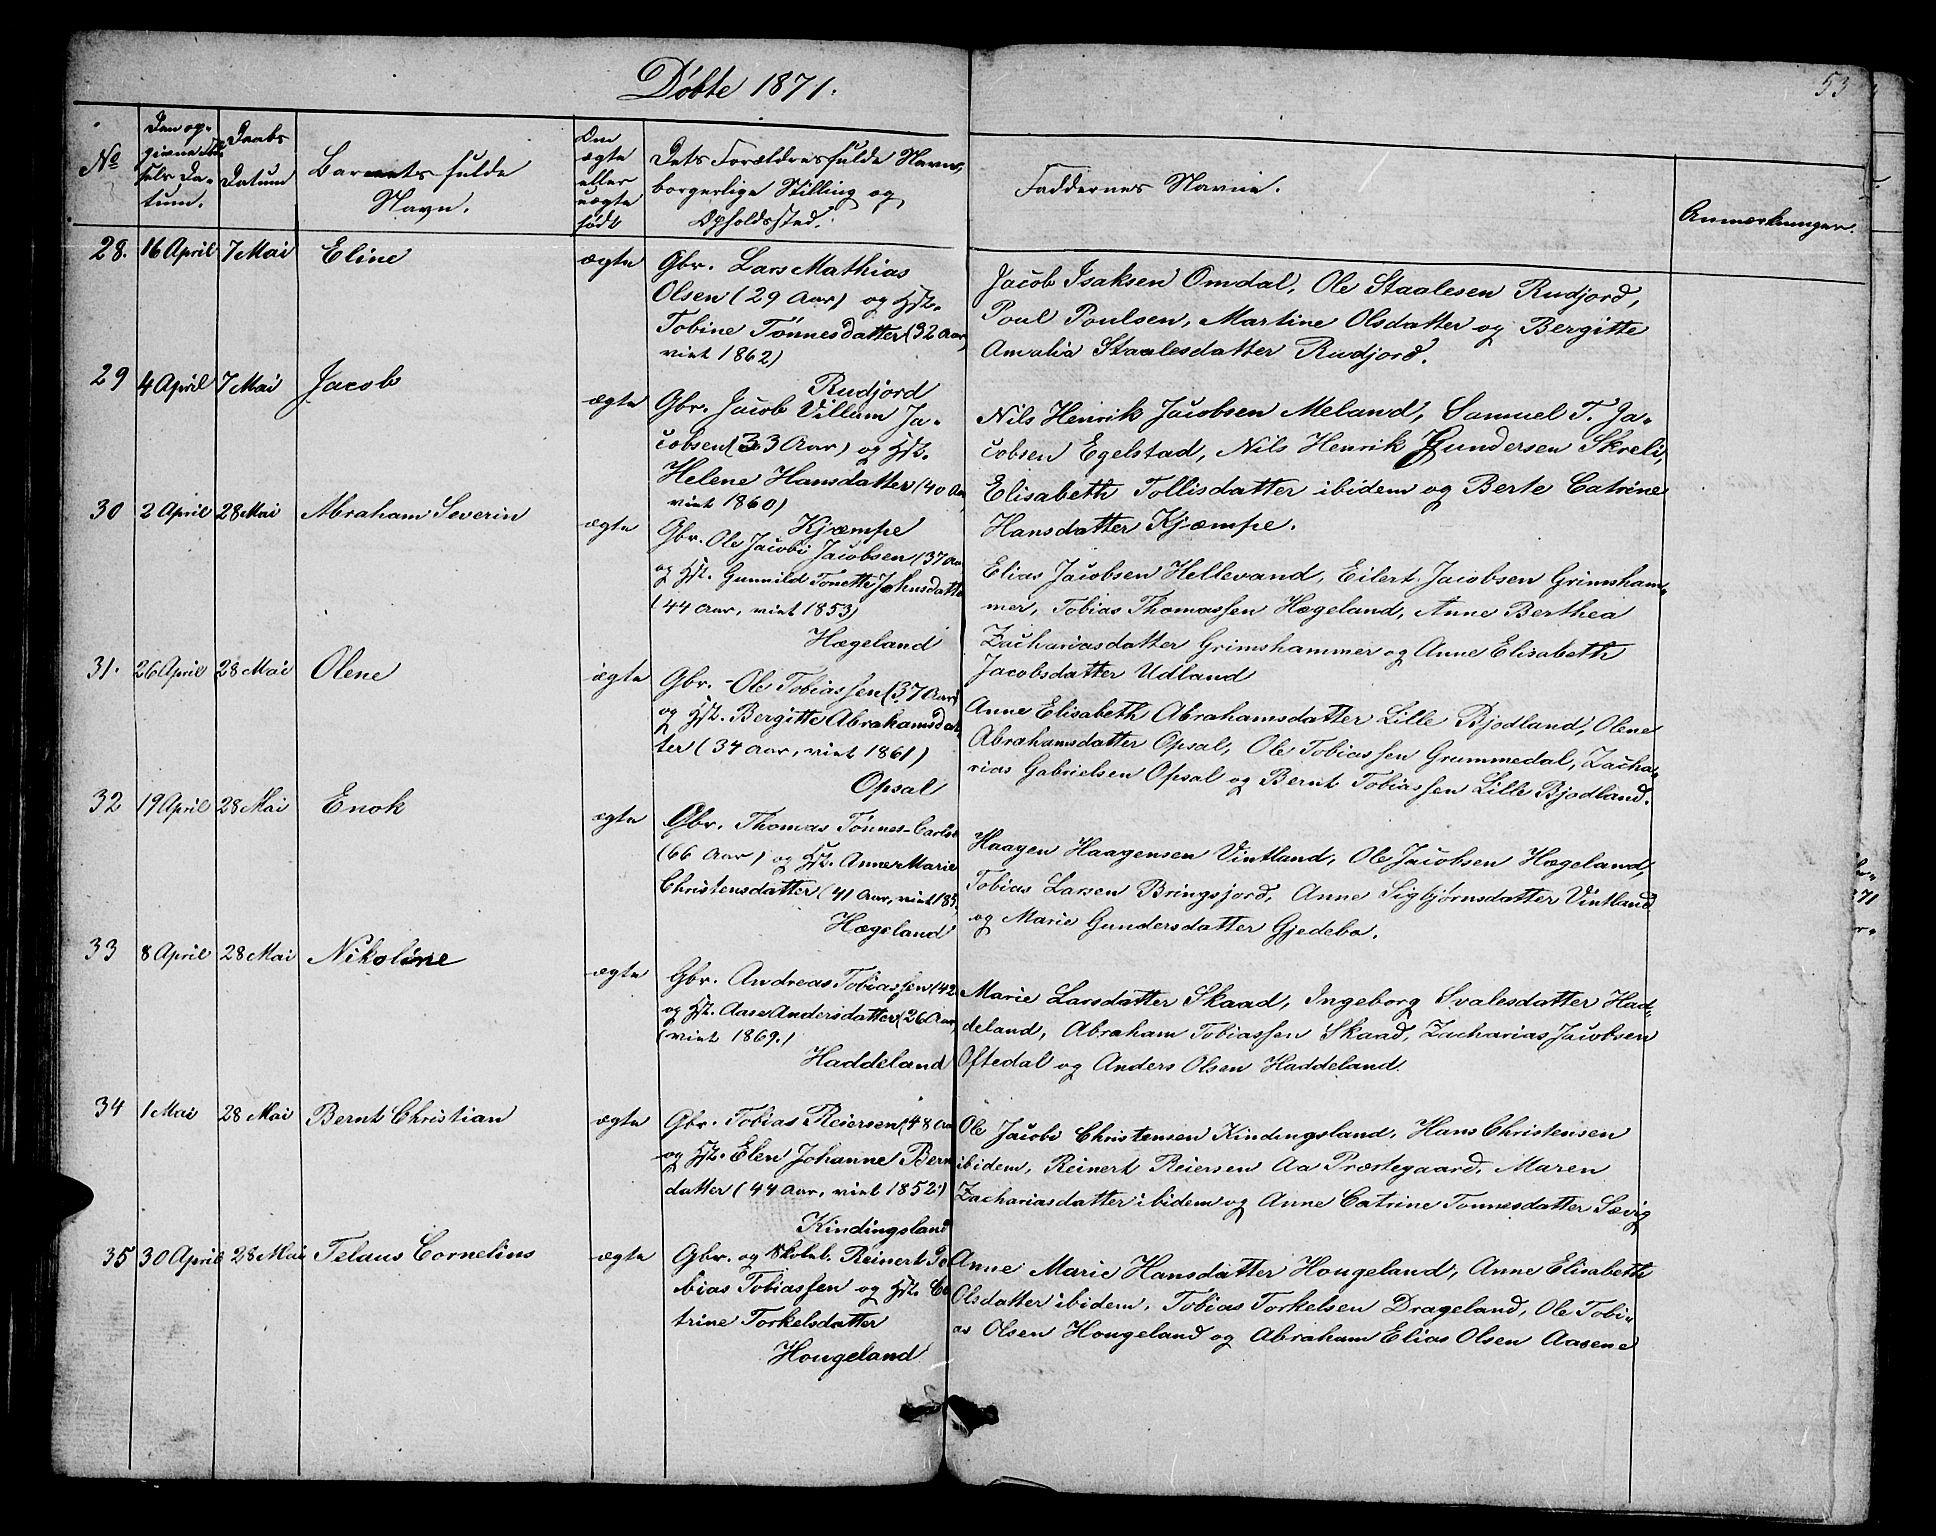 Døbte 1871.
53
No
Den op-
givne Fød-
sels Da-
tum.
Daabs
Datum
Barnets fulde
Navn.
Om
ægte
eller
uægte
født
Dets Forældres fulde Navne,
borgerlige Stilling og
Opholdssted.
Faddernes Navne.
Anmærkninger.
28. 16 April 7 Mai Eline ægte
Gbr. Lars Mathias
Olsen (29 Aar) og Hst.
Tobine Tønnesdatter (32 Aar,
viet 1862)
Rudjord
Jacob Isaksen Omdal, Ole Staalesen Rudjord,
Poul Poulsen, Martine Olsdatter og Bergitte
Amalia Staalesdatter Rudjord.
29 4 April 7 Mai Jacob ægte
Gbr. Jacob Villum Ja-
cobsen (33 Aar) og Hst.
Helene Hansdatter (40 Aar,
viet 1860)
Kjæmpe
Nils Henrik Jacobsen Meland, Samuel T. Ja-
cobsen Egelstad, Nils Henrik Gundersen Skreli,
Elisabeth Tollisdatter ibidem og Berte Catrine
Hansdatter Kjæmpe.
30 2 April 28 Mai Abraham Severin ægte
Gbr. Ole Jacobi Jacobsen (37 Aar
og Hst. Gunnild Tonette Johnsdatte
(44 Aar, viet 1853)
Hægeland
Elias Jacobsen Hellevand, Eilert Jacobsen Grimsham-
mer, Tobias Thomassen Hægeland, Anne Berthea
Zachariasdatter Grimshammer og Anne Elisabeth
Jacobsdatter Udland
31. 26 April 28 Mai Olene ægte
Gbr. Ole Tobiassen (37 Aar)
og Hst. Bergitte Abrahamsdat-
ter (34 Aar, viet 1861)
Opsal
Anne Elisabeth Abrahamsdatter Lille Bjodland, Olene
Abrahamsdatter Opsal, Ole Tobiassen Grummedal, Zacha-
rias Gabrielsen Opsal og Bernt Tobiassen Lille Bjodland.
32 19 April 28 Mai Enok ægte
Gbr. Thomas Tønnes Carls
(66 Aar) og Hst. Anne Marie
Christensdatter (41 Aar, viet 185
Hægeland
Haagen Haagensen Vintland, Ole Jacobsen Hægeland,
Tobias Larsen Bringsjord, Anne Sigbjørnsdatter Vintland
og Marie Gundersdatter Gjedebo.
33 8 April 28 Mai Nikoline ægte
Gbr. Andreas Tobiassen (42
og Hst. Aase Andersdatter (26 Aar,
(viet 1869.)
Haddeland
Marie Larsdatter Skaad, Ingeborg Svalesdatter Had-
deland, Abraham Tobiassen Skaad, Zacharias Jacobsen
Oftedal og Anders Olsen Haddeland.
34 1 Mai 28 Mai Bernt Christian ægte
Gbr. Tobias Reiersen (48 Aar
og Hst. Elen Johanne Bern
datter (44 Aar, viet 1852.)
Kindingsland
Ole Jacobi Christensen Kindingsland, Hans Christensen
ibidem, Reinert Reiersen Aa Præstegaard, Maren
Zachariasdatter ibidem og Anne Catrine Tonnesdatter Sævig
35 30 April 28 Mai Telaus Cornelius ægte
Gbr. og Skolel. Reinert To
bias Tobiassen og Hst. Ca
trine Torkelsdatter
Hougeland
Anne Marie Hansdatter Hougeland, Anne Elisabeth
Olsdatter ibidem, Tobias Torkelsen Drageland, Ole Tobi-
as Olsen Hougeland og Abraham Elias Olsen Aasene